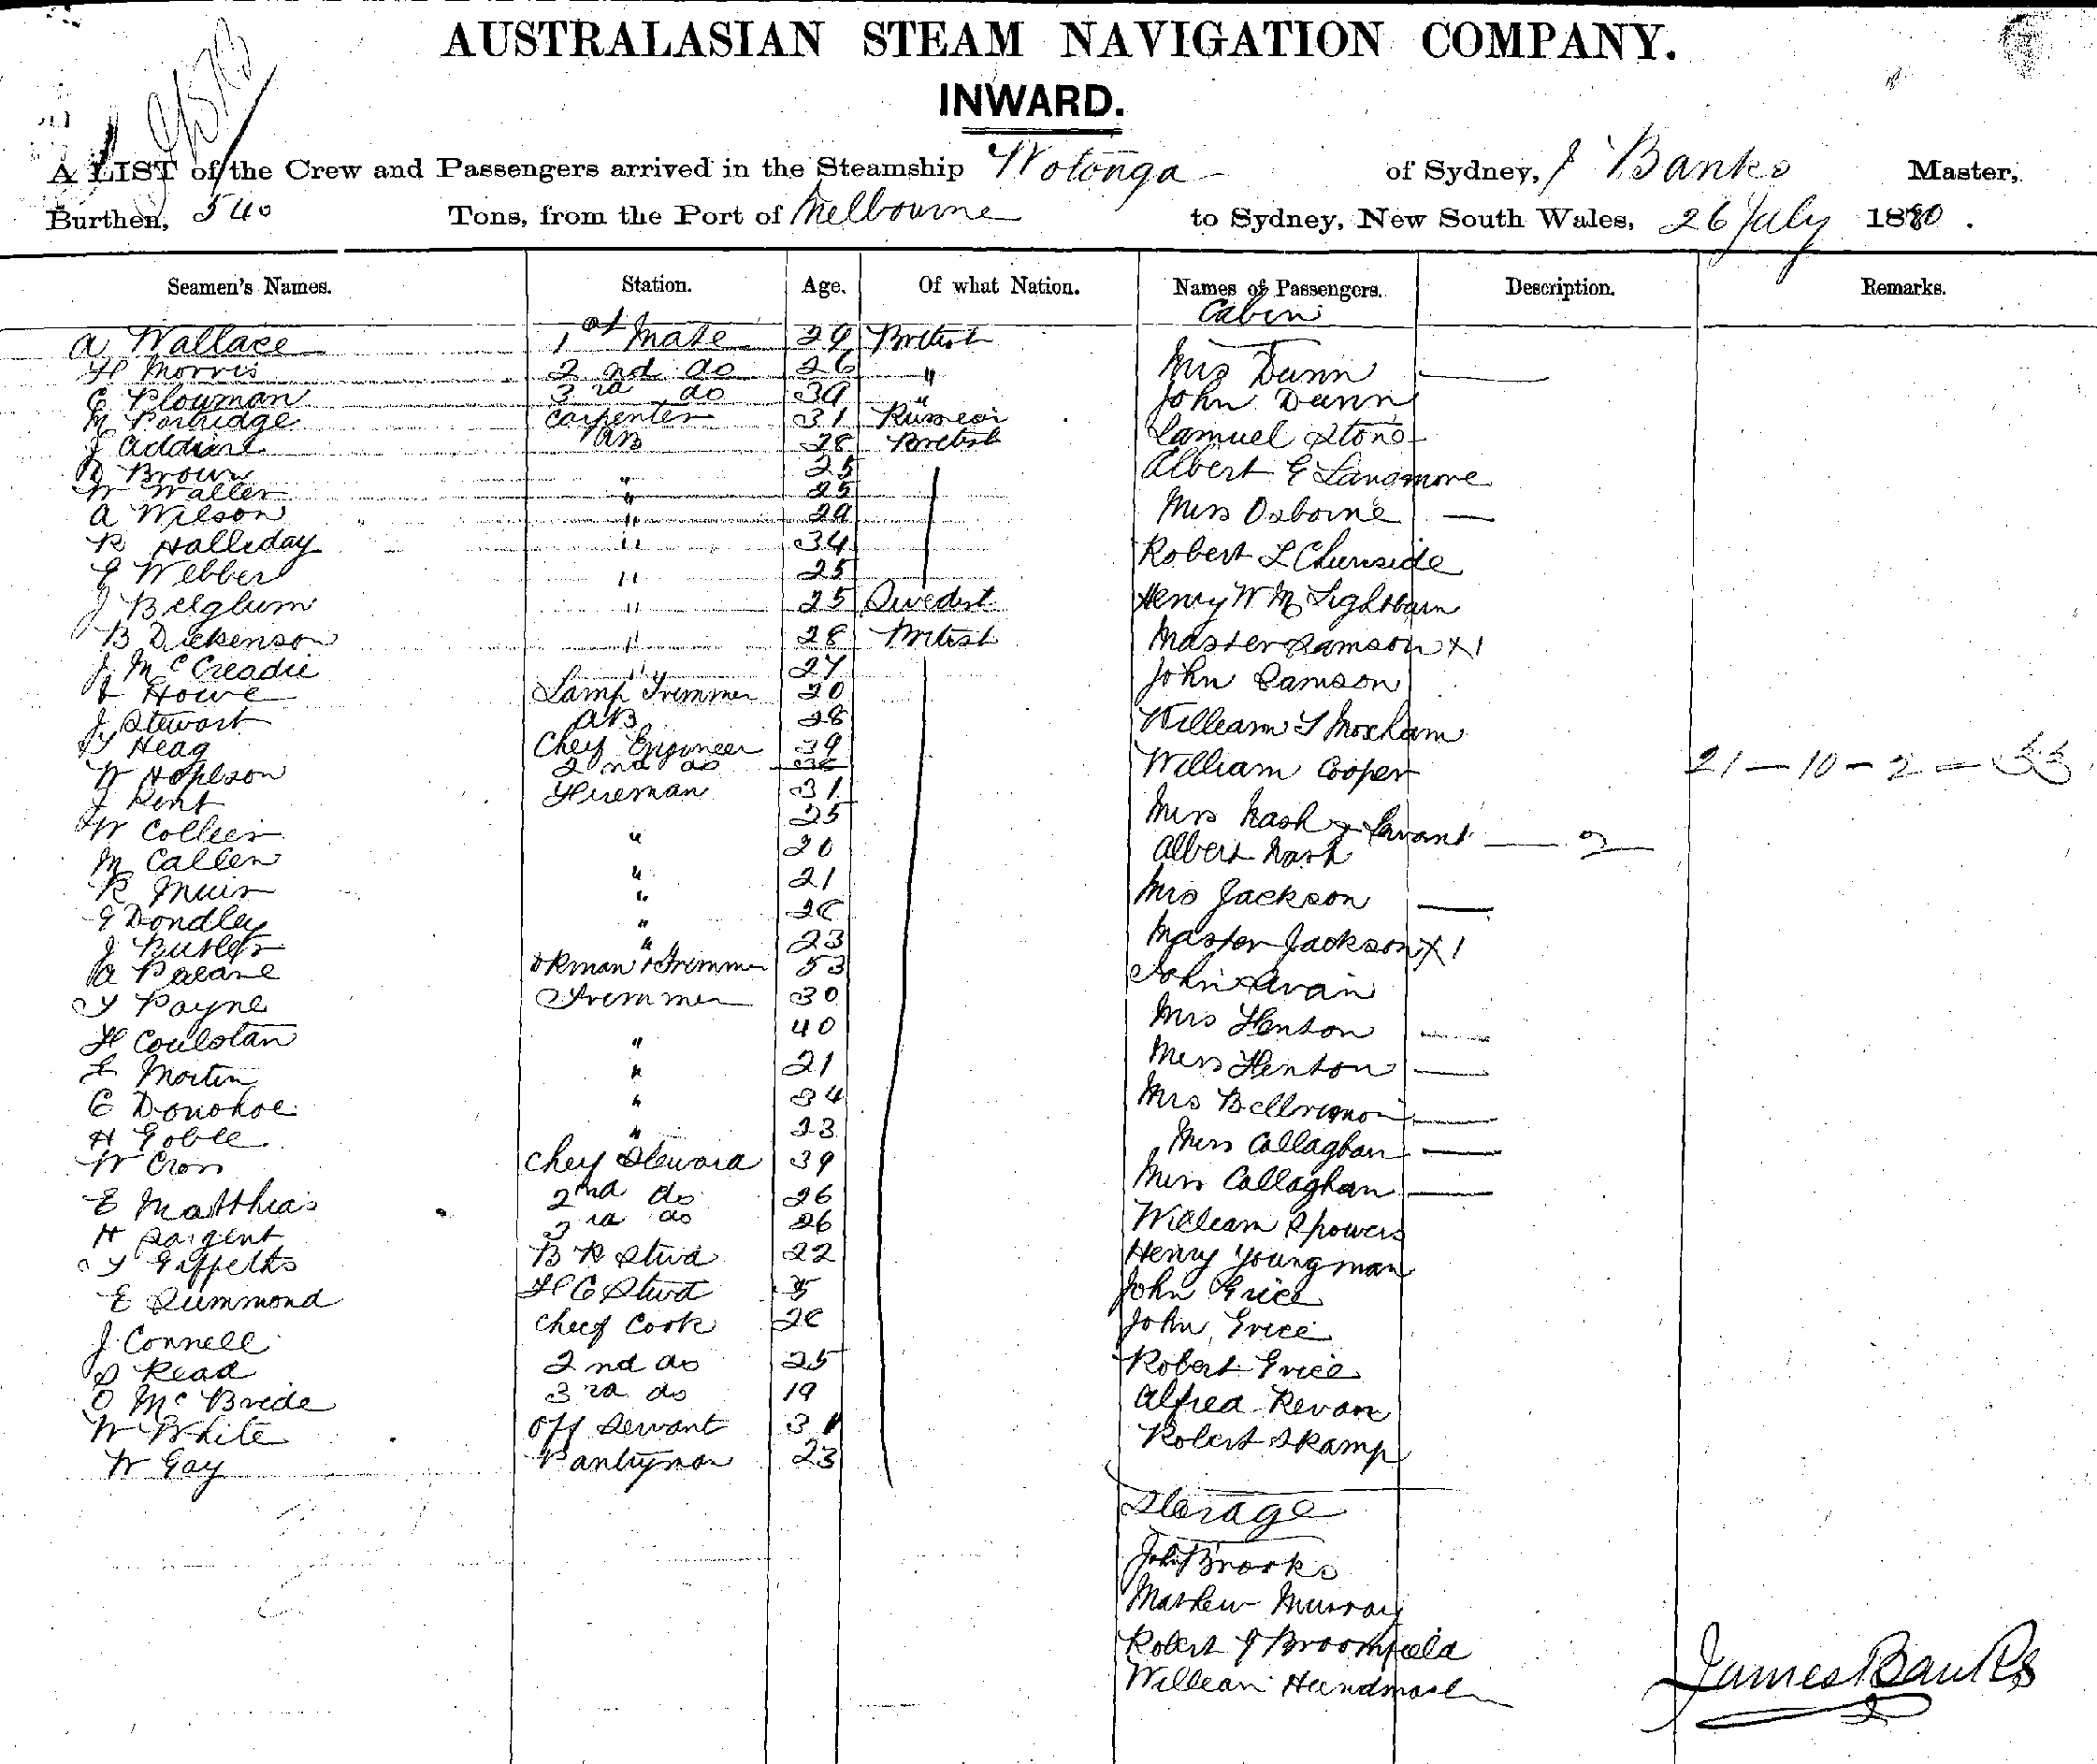 AUSTRALASIAN STEAM NAVIGATION COMPANY.
INWARD.
A LIST of the Crew and Passengers arrived in the Steamship Wotonga of Sydney, J Banks Master,
Burthen, 540 Tons, from the Port of Melbourne to Sydney, New South Wales, 26 July 1880.
Seamen's Names. Station. Age. Of what Nation. Names of Passengers. Description. Remarks.
Cabin
A Wallace 1st Mate 29 British
H Morris 2nd do 26 "
C Plowman 3rd do 39 "
M Partridge Carpenter 31 Russian
J Addine AB 28 British
D Brown " 25
W Waller " 25
A Wilson " 29
R Halliday " 34
G Webber " 25
J Belglum " 25 Swedish
B Dickenson " 28 British
J McCreadie " 27
Howe Lamp Trimmer 20
J Stewart AB 28
T Heag Chief Engineer 39
W Hoplson 2nd do
J Kent Fireman 31
W Collier " 25
M Callen " 20
R Muir " 21
G Dondley "
J Butler " 23
A Palane & Trimmer 53
T Payne Trimmer 30
H Coulstan " 40
L Mortin " 21
C Donohoe " 34
H Goble " 23
W Cross Chief Steward 39
E Matthias 2nd do 26
H Sargent 3rd do 26
T Griffeths B R Stwd 22
E Dummond F C Stwd
J Connell Chief Cook
S Read 2nd do 25
O McBride 3rd do 19
W White Off Servant 31
W Gay Pantryman 23
Mrs Dunn
John Dunn
Samuel Stone
Albert G Langmore
Miss Osborne
Robert L Chirnside
Henry W M Lightbain
Master Samson X 1
John Samson
William T Moxham
William Cooper
21 - 10 - 2 = 33
Miss Nash & Servant 2
Albert Nash
Mrs Jackson
Master Jackson X 1
John Swan
Mrs Fenton
Miss Fenton
Mrs
Miss Callaghan
Miss Callaghan
William Showers
Henry Youngman
John Grice
John Grice
Robert Grice
Alfred Revans
Robert S Kamp
Sterage
John Brooks
Mathew Murray
Robert J Broomfield
William Handmash
James Banks